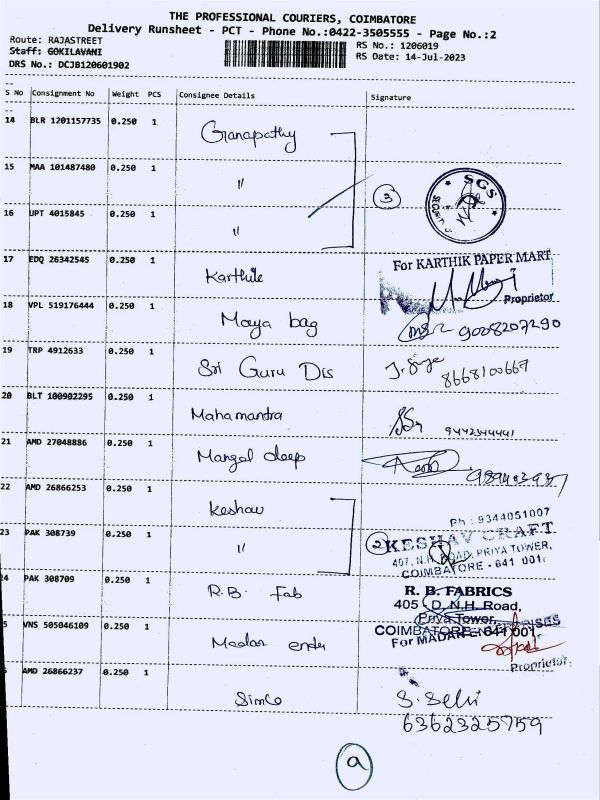 THE PROFESSIONAL COURIERS, COIMBATORE
Delivery Runsheet - PCT - Phone No.:0422-3505555 - Page No.:2
Route: RAJASTREET
Staff: GOKILAVANI
DRS No.: DCJB120601902
RS No.: 1206019
RS Date: 14-Jul-2023
S No Consignment No Weight PCS Consignee Details Signature
14 BLR 1201157735 0.250 1 Ganapathy
15 MAA 101487480 0.250 1 〃
3
SGS
16 UPT 4015845 0.250 1 〃
17 EDQ 26342545 0.250 1 Karthik
For KARTHIK PAPER MART
Proprietor
18 VPL 519176444 0.250 1 Maya bag
9008207290
19 TRP 4912633 0.250 1 Sri Guru Dis
8668100667
20 BLT 100902295 0.250 1 Mahamantra
9442344441
21 AMD 27048886 0.250 1 Mangal deep
22 AMD 26866253 0.250 1 Keshav
Ph : 9344051007
23 PAK 308739 0.250 1 〃
2
KESHAV CRAFT
407, N.H. ROAD, PRIYA TOWER,
COIMBATORE - 641 001.
24 PAK 308709 0.250 1 R.B. Fab
R. B. FABRICS
405 - D, N.H. Road,
Priya Tower,
COIMBATORE - 641 001
5 VNS 505046109 0.250 1 Madan enter
For MADAN ENTERPRISES
Proprietor
AMD 26866237 0.250 1 Simco
S. Selvi
6362325759
a